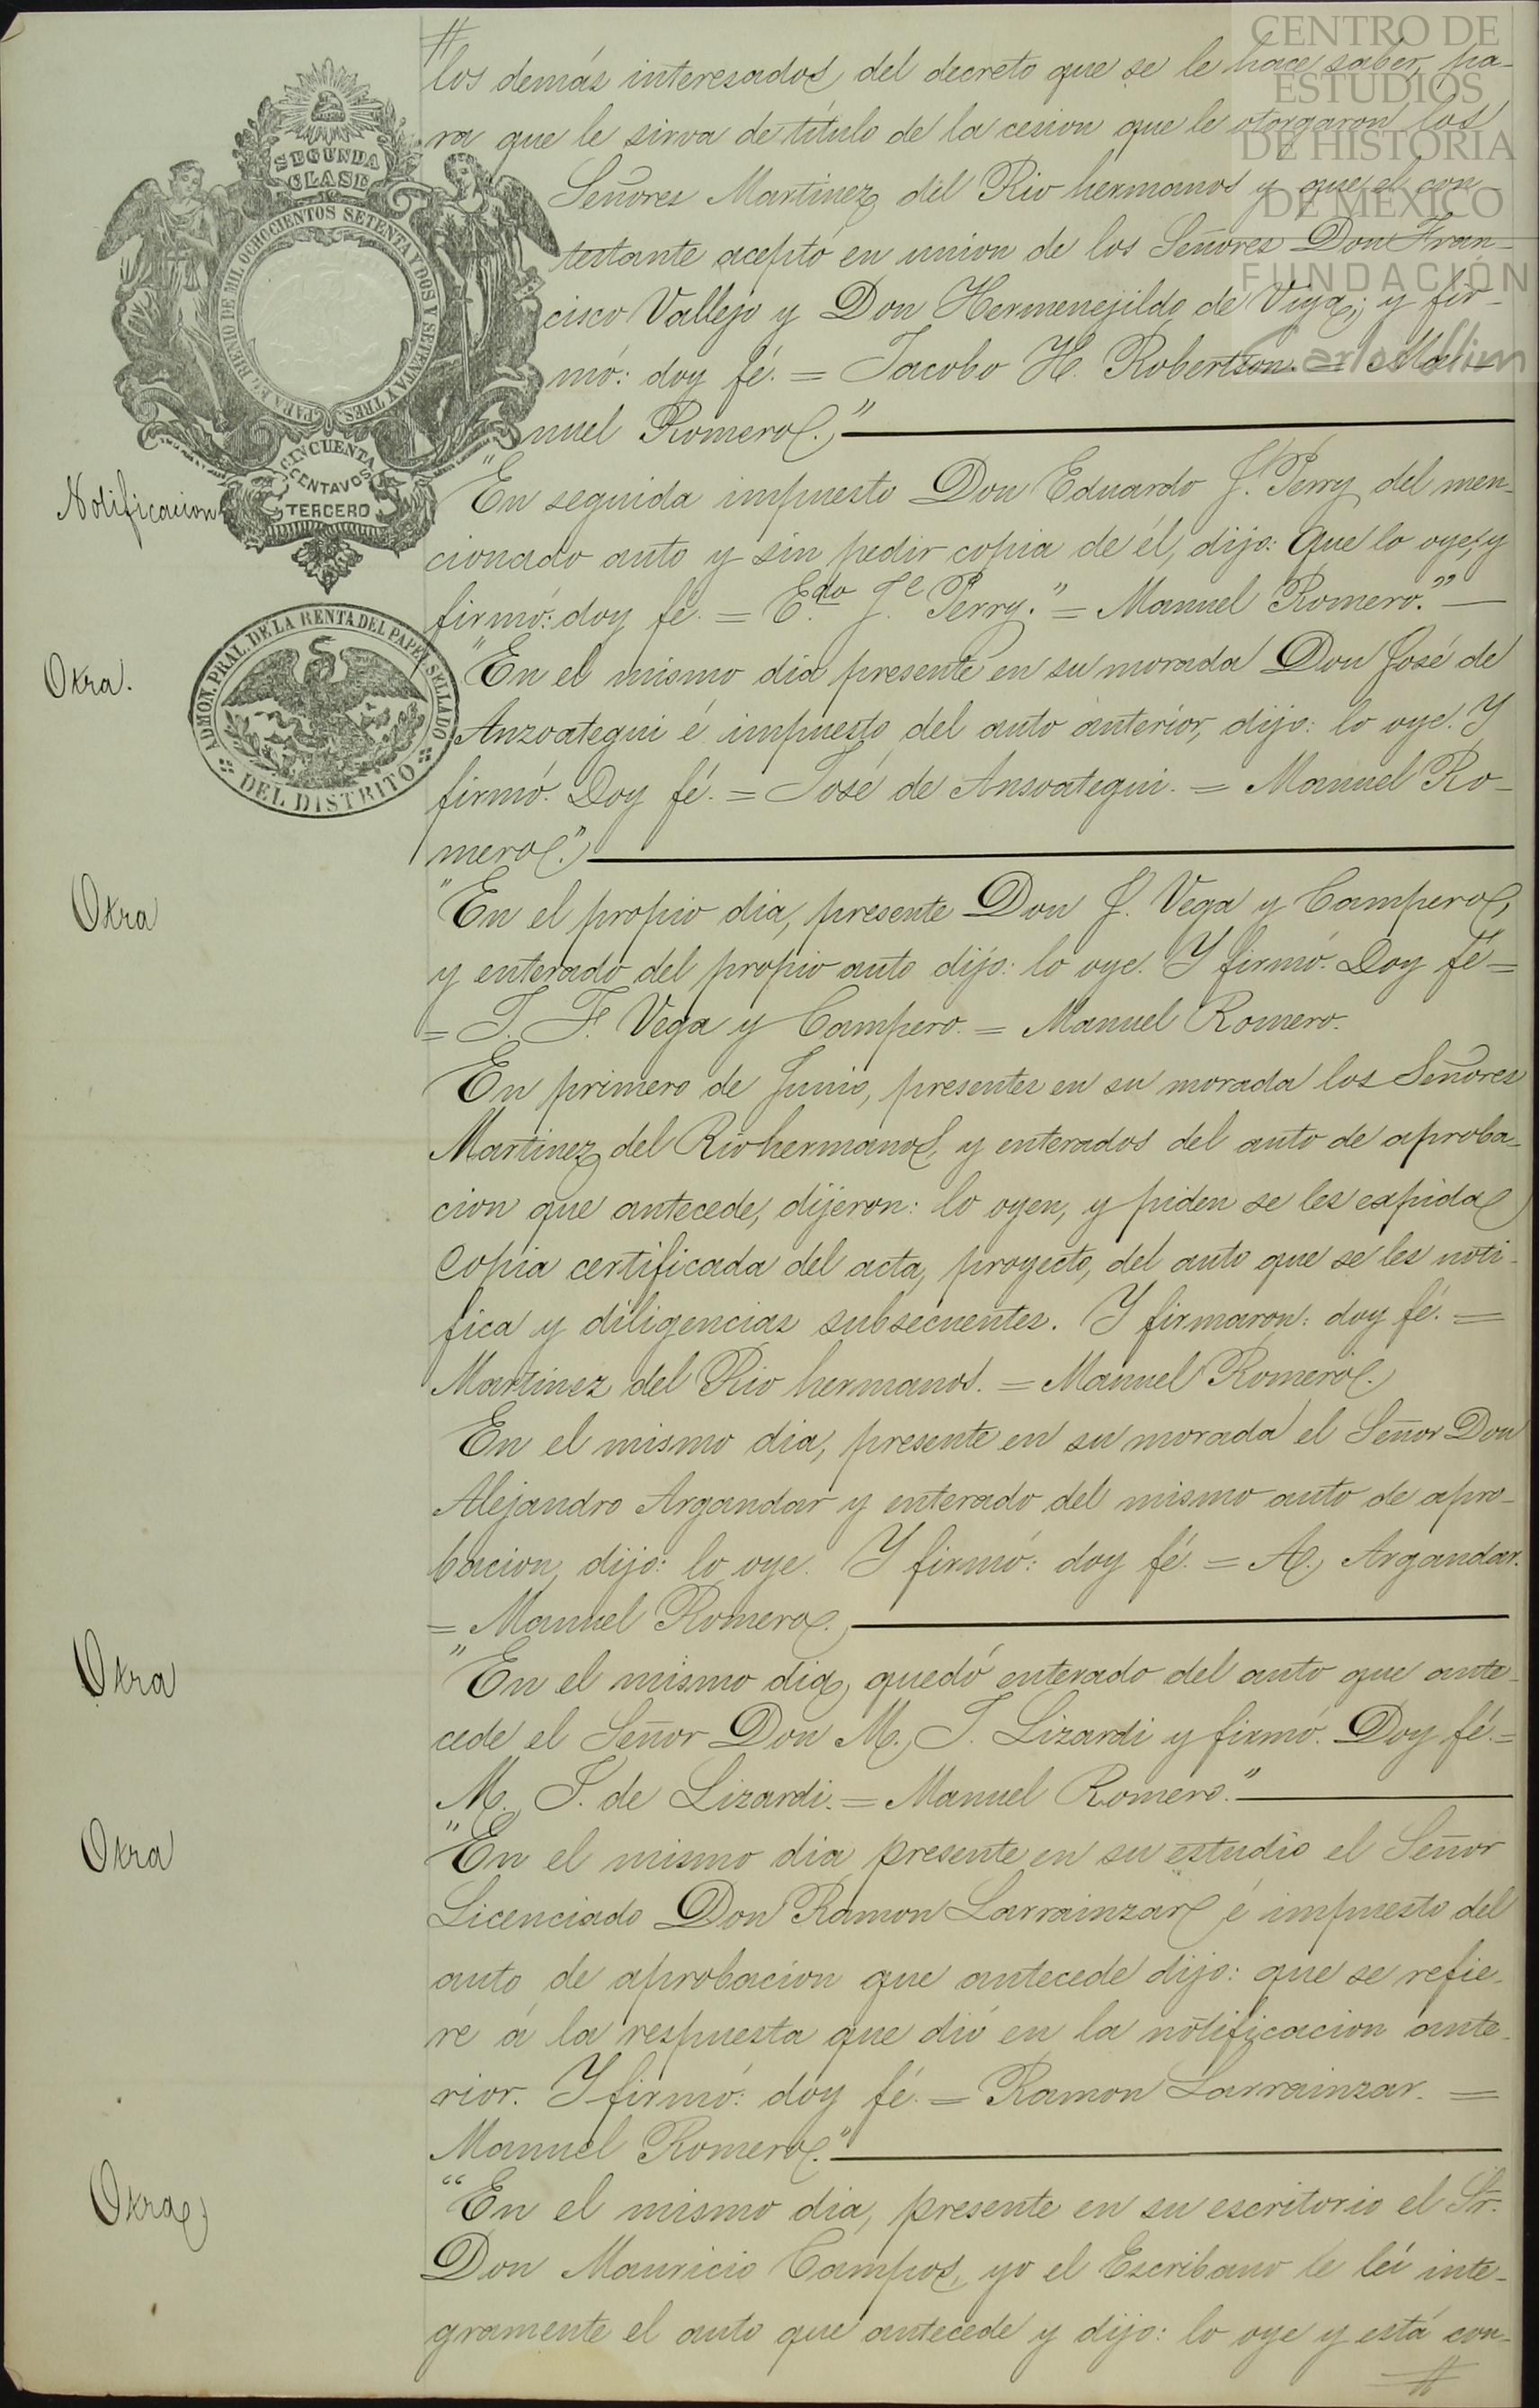 CENTRO DE
ESTUDIOS
DE HISTORIA
DE MÉXICO
FUNDACIÓN
Carlos Slim
SEGUNDA
CLASE
PARA EL BIENIO DE MIL OCHOCIENTOS SETENTA Y DOS Y SETENTA Y TRES.
CINCUENTA
CENTAVOS
TERCERO
ADMON. PRAL. DE LA RENTA DEL PAPEL SELLADO
DEL DISTRITO
los demás interesados, del decreto que se le hace saber, pa-
ra que le sirva de título de la cesion que le otorgaron los
Señores Martinez del Rio hermanos y que el con-
testante aceptó en union de los Señores Don Fran-
cisco Vallejo y Don Hermenejildo de Viya; y fir-
mó: doy fé. = Jacobo H. Robertson. = Ma-
nuel Romero."
Notificacion
"En seguida impuesto Don Eduardo J. Perry del men-
cionado auto y sin pedir copia de él, dijo: que lo oye, y
firmó: doy fé. = Edo. Je. Perry." = Manuel Romero."
Otra.
"En el mismo dia presente en su morada Don José de
Anzoategui é impuesto del auto anterior, dijo: lo oye. Y
firmó. Doy fé. = José de Ansoategui. = Manuel Ro-
mero."
Otra
"En el propio dia, presente Don J. Vega y Campero,
y enterado del propio auto dijo: lo oye. Y firmó. Doy fé =
= J. F. Vega y Campero. = Manuel Romero.
En primero de Junio, presentes en su morada los Señores
Martinez del Rio hermanos, y enterados del auto de aproba-
cion que antecede, dijeron: lo oyen, y piden se les expida
copia certificada del acta, proyecto, del auto que se les noti-
fica y diligencias subsecuentes. Y firmaron: doy fé. =
Martinez del Rio hermanos. = Manuel Romero.
En el mismo dia, presente en su morada el Señor Don
Alejandro Argandar y enterado del mismo auto de apro-
bacion, dijo: lo oye. Y firmó: doy fé. = A. Argandar.
= Manuel Romero.
Otra
"En el mismo dia, quedó enterado del auto que ante-
cede el Señor Don M. J. Lizardi y firmó. Doy fé. =
M. J. de Lizardi. = Manuel Romero."
Otra
"En el mismo dia presente en su estudio el Señor
Licenciado Don Ramon Larrainzar é impuesto del
auto de aprobacion que antecede dijo: que se refie-
re á la respuesta que dió en la notificacion ante-
rior. Y firmó: doy fé. = Ramon Larrainzar. =
Manuel Romero."
Otra
"En el mismo dia, presente en su escritorio el Sr.
Don Mauricio Campos, yo el Escribano le lei inte-
gramente el auto que antecede y dijo: lo oye y está con-